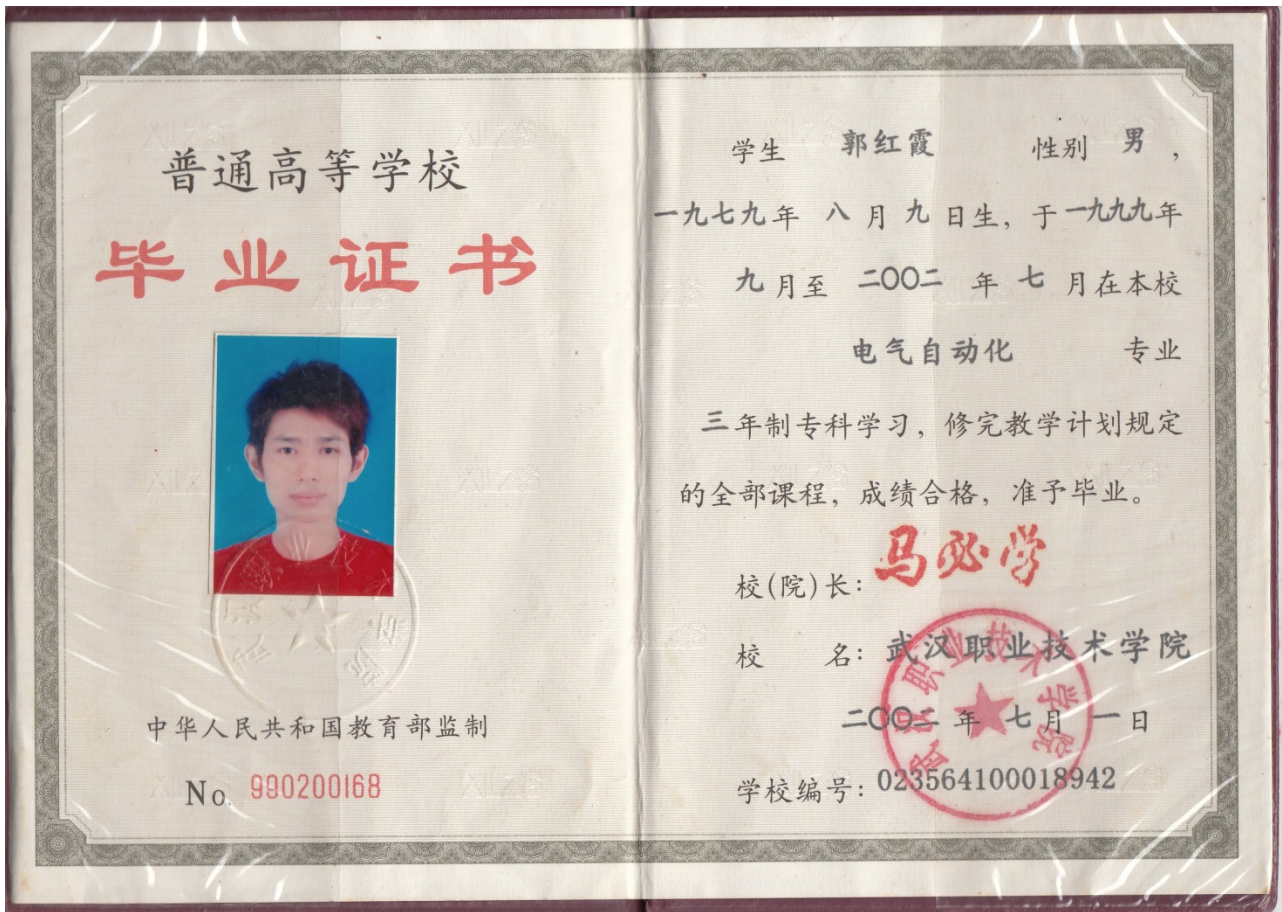 普通高等学校
毕业证书
中华人民共和国教育部监制
No. 990200168
学生 郭红霞 性别 男，
一九七九年 八月九日生，于一九九九年
九月至 二〇〇二 年 七 月在本校
电气自动化 专业
三年制专科学习，修完教学计划规定
的全部课程，成绩合格，准予毕业。
校(院)长：马必学
校 名：武汉职业技术学院
二〇〇二年七月一日
学校编号：023564100018942
武汉职业技术学院